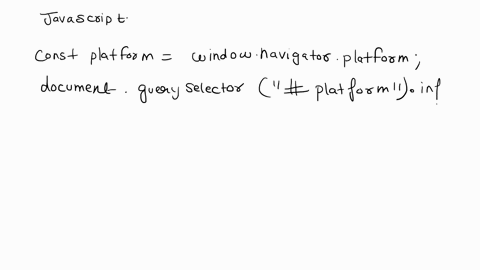 Javascript.
const platform = window.navigator.platform;
document.querySelector ("# platform").inf